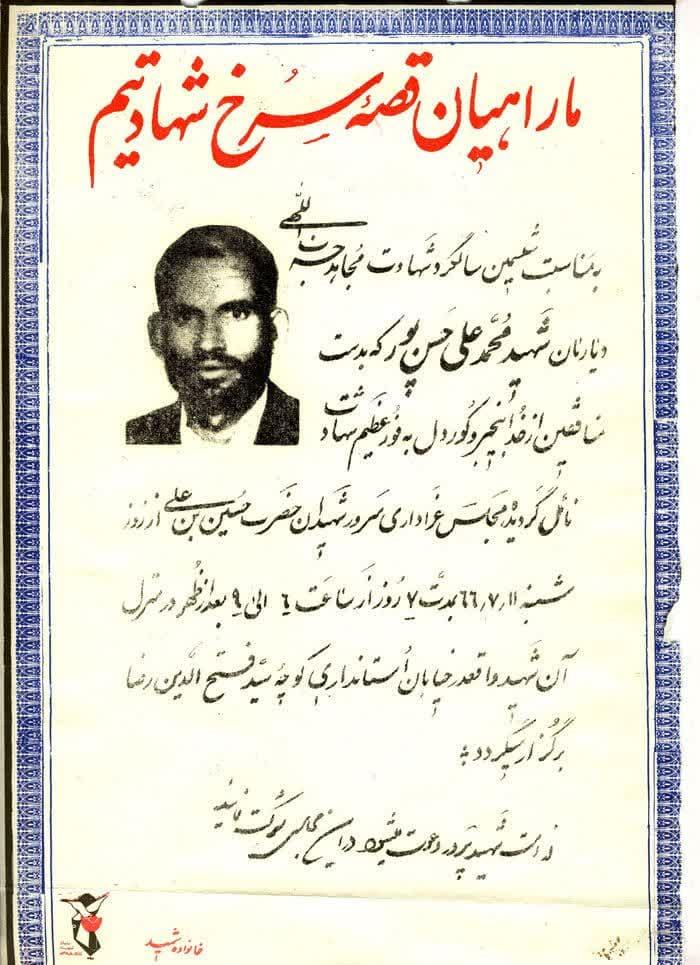 ما راهیان قصهٔ سرخ شهادتیم
به مناسبت ششمین سالگرد شهادت مجاهد جبهه الهی
و یارمان شهید محمد علی حسن پور که بدست
منافقین از خدا بیخبر و کوردل به فوز عظیم شهادت
نائل گردیده مجالس عزاداری سرور شهیدان حضرت حسین بن علی از روز
شنبه ۶۶٫۷٫۱۱ بمدت ۷ روز از ساعت ۶ الی ۹ بعد از ظهر در منزل
آن شهید واقعدر خیابان استانداری کوچهٔ سید فتح الدین رضا
برگزار میگردد
از امت شهیدپرور دعوت میشود در این مجالس شرکت نمایند
خانواده شهید